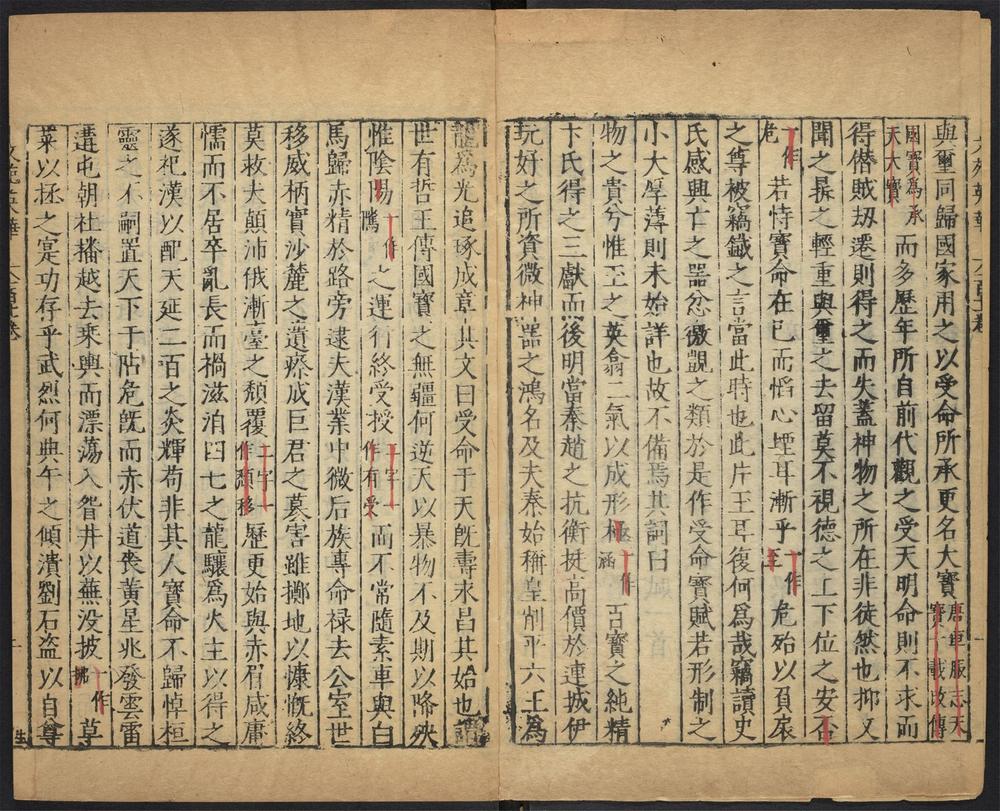 與璽同歸國家用之以受命所承更名大寶唐車服志天寶載改傳
國寶爲承天大寶而多歷年所自前代觀之受天明命則不求而
得僣賊刼遷則得之而失蓋神物之所在非徒然也抑又
聞之鼎之輕重與璽之去留莫不視德之上下位之安否
一作危若恃寶命在已而慆心堙耳漸乎一作至危殆以負扆
之尊被竊鐵之言當此時也此片王耳復何爲哉竊讀史
氏感興亡之器忿徼覬之類於是作受命寶賦若形制之
小大厚薄則未始詳也故不備焉其詞曰
物之貴兮惟玉之英翕二氣以成形極一作涵古寶之純精
卞氏得之三獻而後明當秦趙之抗衡挺高價於連城伊
玩好之所資微神器之鴻名及夫秦始稱皇削平六王爲
龍爲光追琢成章其文曰受命于天旣壽永昌其始也謂
世有哲王傳國寶之無疆何逆天以暴物不及期以降殃
惟陰陽一作隲之運行終受授一字作有受而不常隨素車與白
馬歸赤精於路旁逮夫漢業中微后族專命祿去公室世
移威柄實沙麓之遺瘵成巨君之篡害雖擲地以慷慨終
莫救大顛沛俄漸臺之頽覆二字一作頽移歷更始與赤眉咸庸
懦而不居卒亂長而禍滋洎四七之龍驤爲火主以得之
遂祀漢以配天延二百之炎輝苟非其人寶命不歸悼桓
靈之不嗣置天下于阽危旣而赤伏道喪黃星兆發雲雷
遘屯朝社播越去乘輿而漂蕩入眢井以蕪没披一作撥草
萊以拯之寔功存乎武烈何典午之傾潰劉石盜以自尊